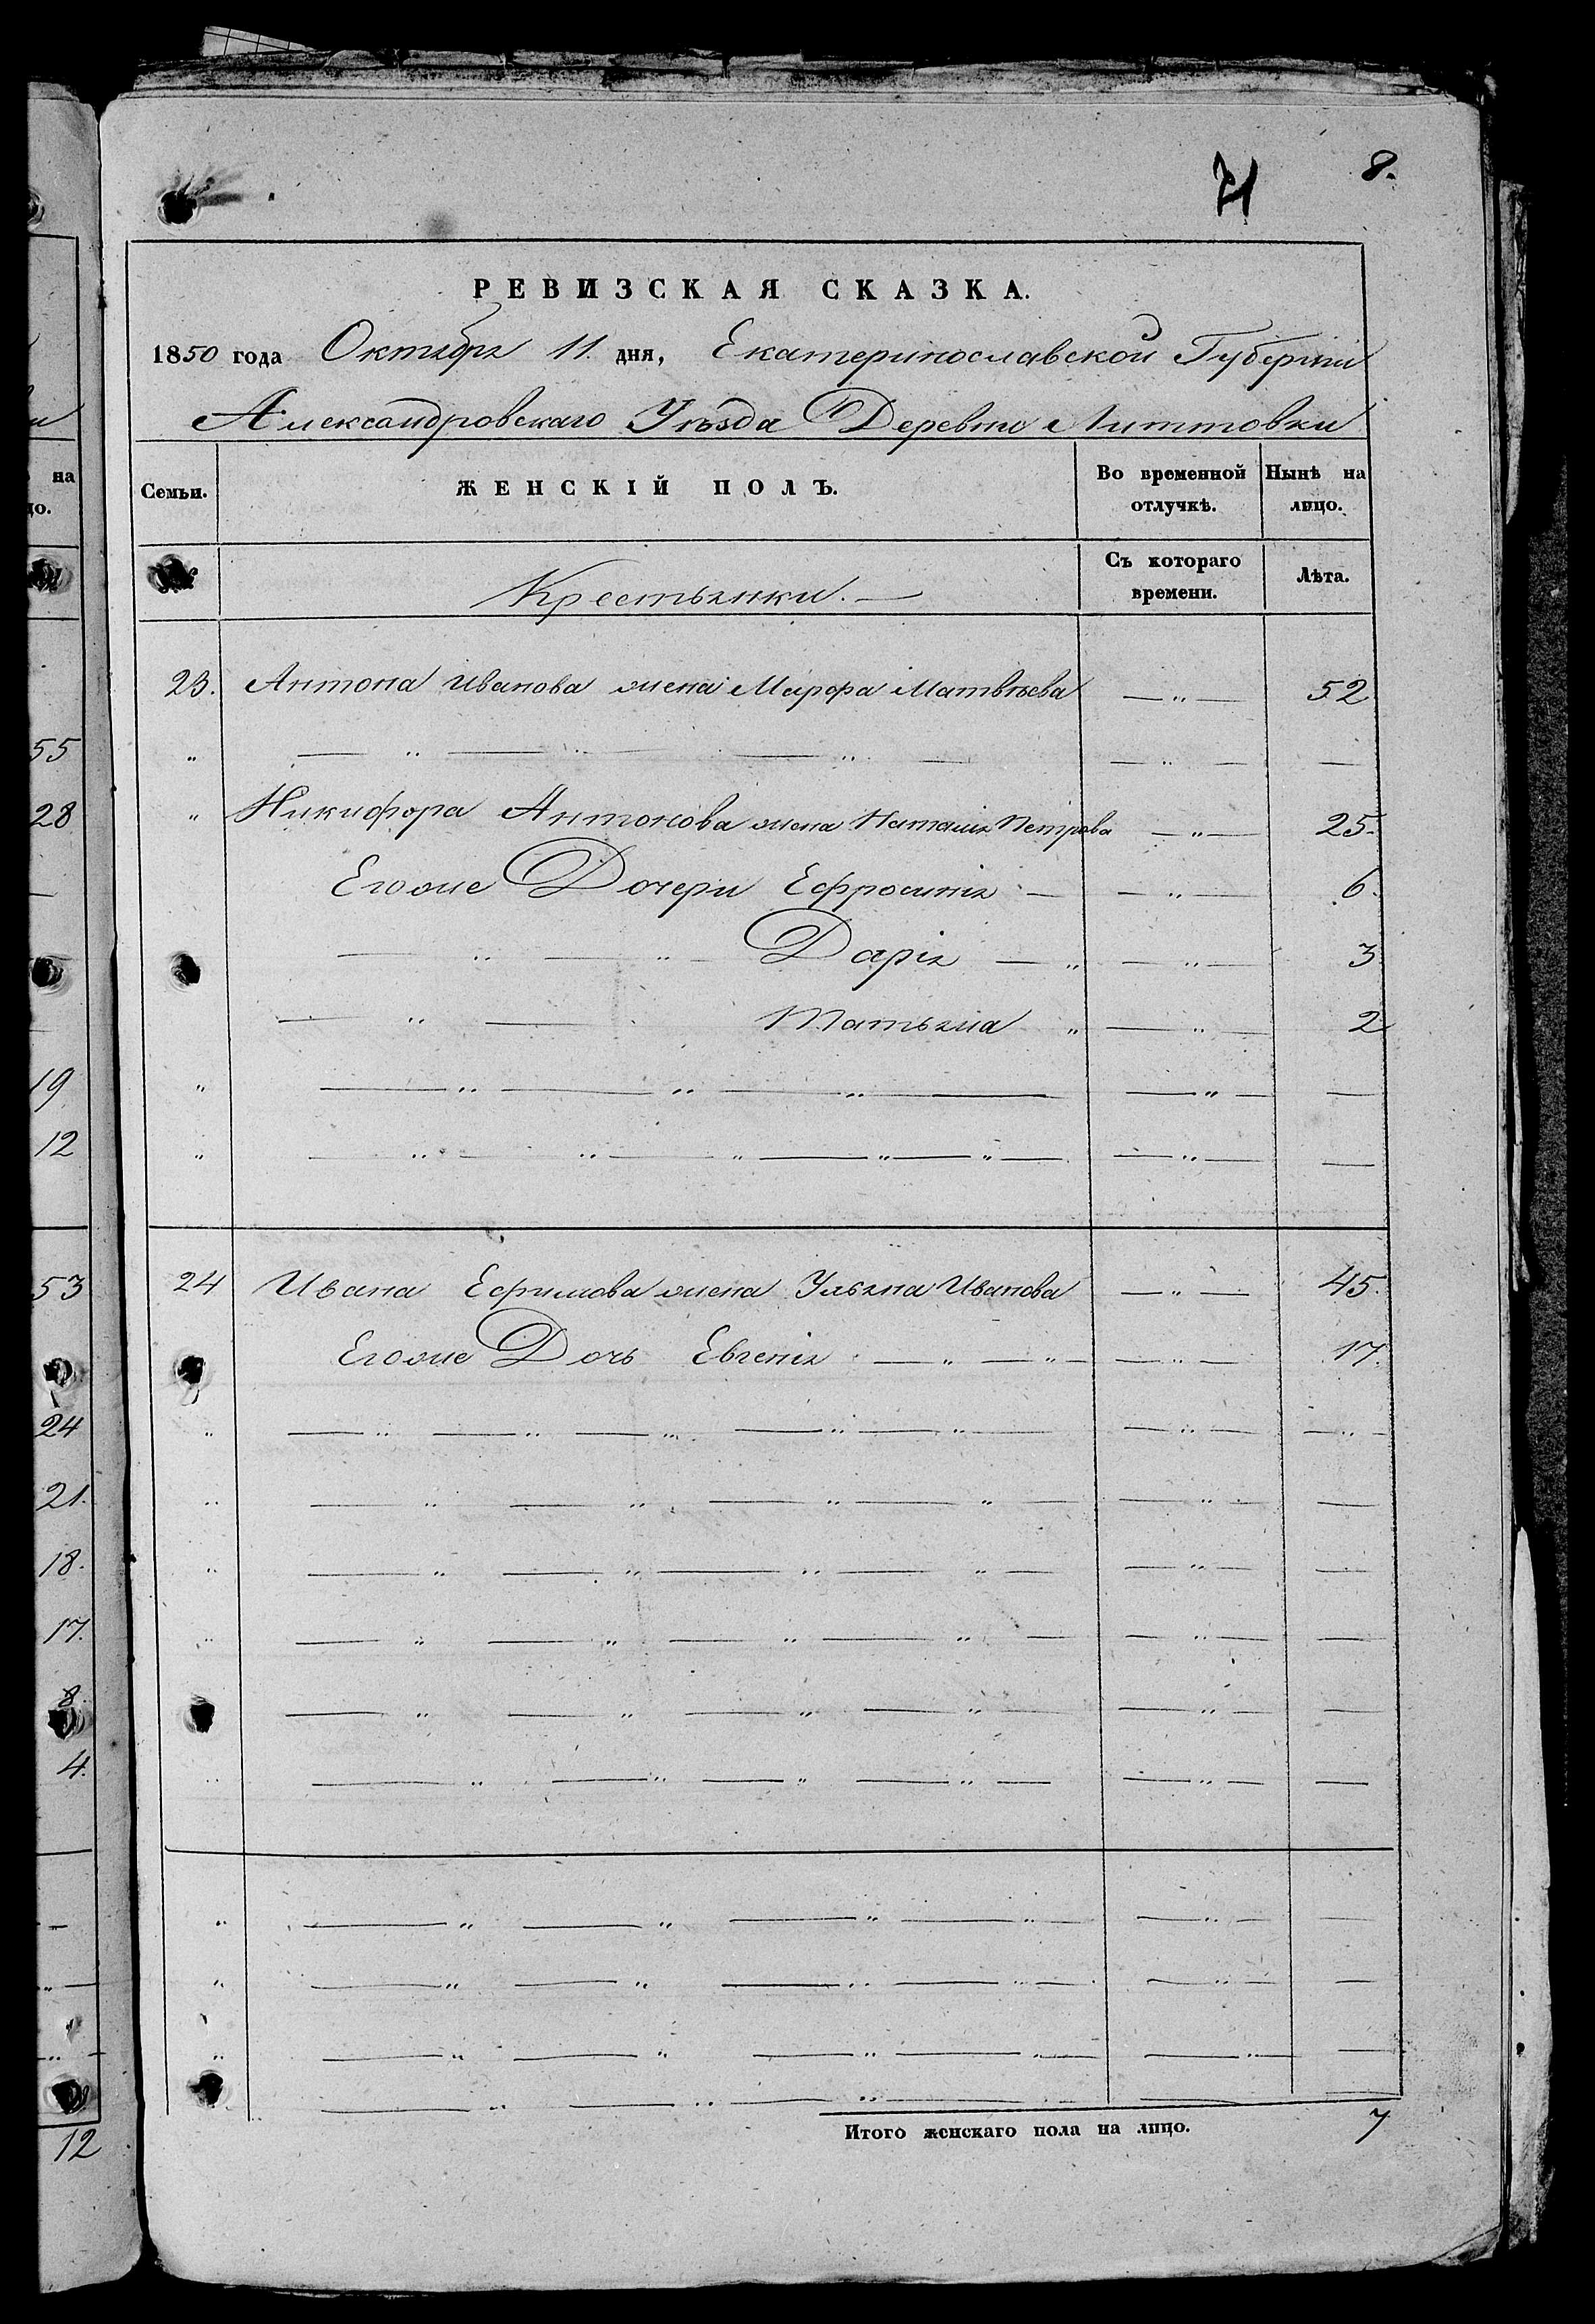 71 8.
РЕВИЗСКАЯ СКАЗКА.
1850 года Октября 11. дня, Екатеринославской Губерніи
Александровскаго Уѣзда Деревни Литтовки
Семьи. ЖЕНСКІЙ ПОЛЪ. Во временной отлучкѣ. Нынѣ на лицо.
Крестьянки. — Съ котораго времени. Лѣта.
23. Антона Иванова жена Марфа Матвѣева — " — 52
" — " — " — " — — " — —
" Никифора Антонова жена Наталія Петрова — " — 25.
Егоже Дочери Ефросинія — — " — 6.
— " — " — Дарія — " — " — 3
— " — Татьяна " — " — 2
" — " — " — " — — " — —
" — " — " — " — " — " — — " — —
24 Ивана Ефимова жена Ульяна Иванова — " — 45.
Егоже Дочь Евгенія — " — " — — " — 17.
" — " — " — " — " — " — — " — — " —
" — " — " — " — " — — " — —
" — " — " — " — " — — " — —
" — " — " — " — " — — " — —
" — " — " — " — " — " — —
" — " — " — " — " — — " — —
" — " — " — " — " — — " — —
" — " — " — " — " — — " — —
" — " — " — " — " — — " — —
— " — " — " —
Итого женскаго пола на лицо. 7
на
55
28
19
12
53
24
21.
18.
17.
8.
4.
12